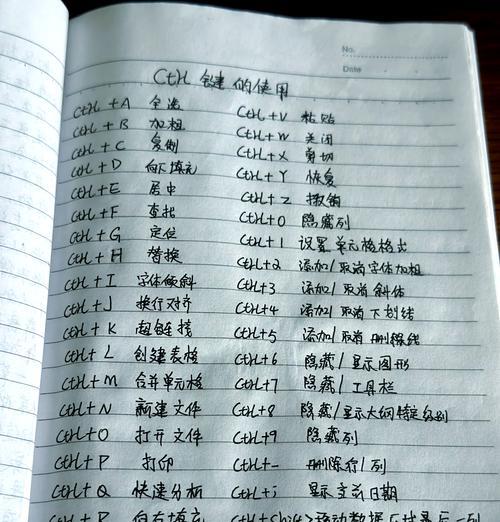 No.
Date
Ctrl 键的使用
Ctrl +A 全选
Ctrl +B 加粗
Ctrl +C 复制
Ctrl +D 向下填充
Ctrl+E 居中
Ctrl+F 查找
Ctrl+G 定位
Ctrl+H 替换
Ctrl+I 字体倾斜
Ctrl+J 换行对齐
Ctrl+K 超链接
Ctrl+L 创建表格
Ctrl+M 合并单元格
Ctrl+N 新建文件
Ctrl+O 打开文件
Ctrl+P 打印
Ctrl+Q 快速分析
Ctrl+R 向右填充
Ctrl+V 粘贴
Ctrl+W 关闭
Ctrl+X 剪切
Ctrl+Y 恢复
Ctrl+Z 撤销
Ctrl+0 隐藏列
Ctrl+1 设置单元格格式
Ctrl+2 添加/取消字体加粗
Ctrl+3 添加/取消斜体
Ctrl+4 添加/取消下划线
Ctrl+5 添加/取消删除线
Ctrl+6 隐藏/显示图形
Ctrl+7 隐藏/工具栏
Ctrl+8 隐藏/显示大纲特定级别
Ctrl+9 隐藏列
Ctrl+- 删除行/列
Ctrl+; 显示当前日期